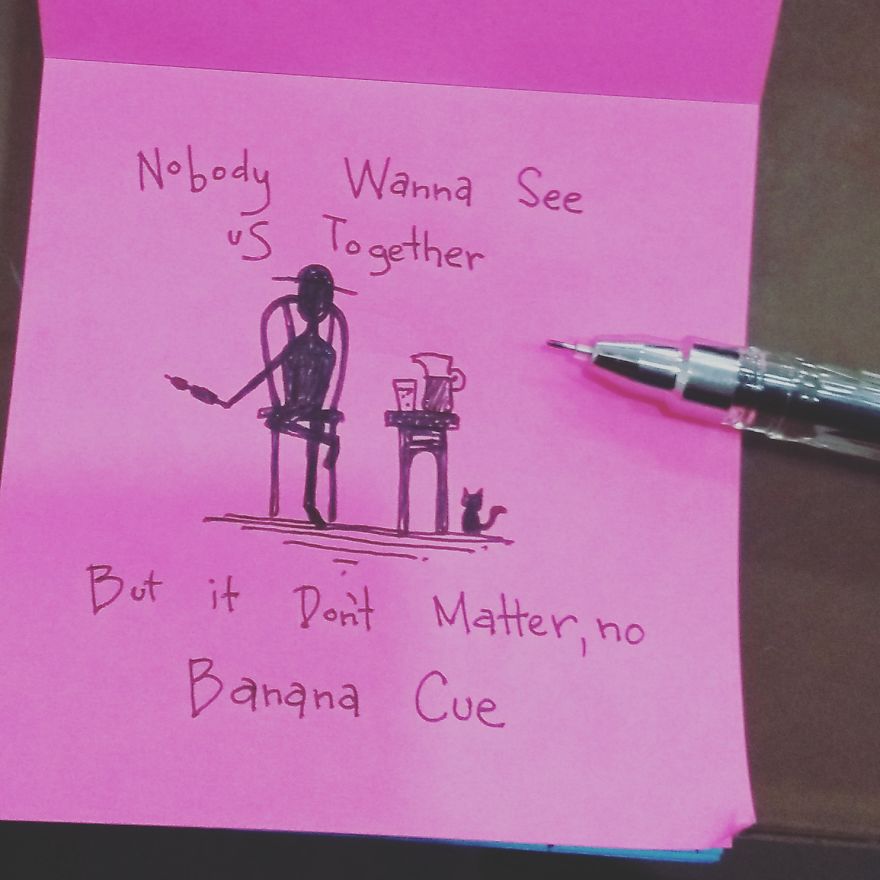 Nobody Wanna See
us Together
But it Don't Matter, no
Banana Cue